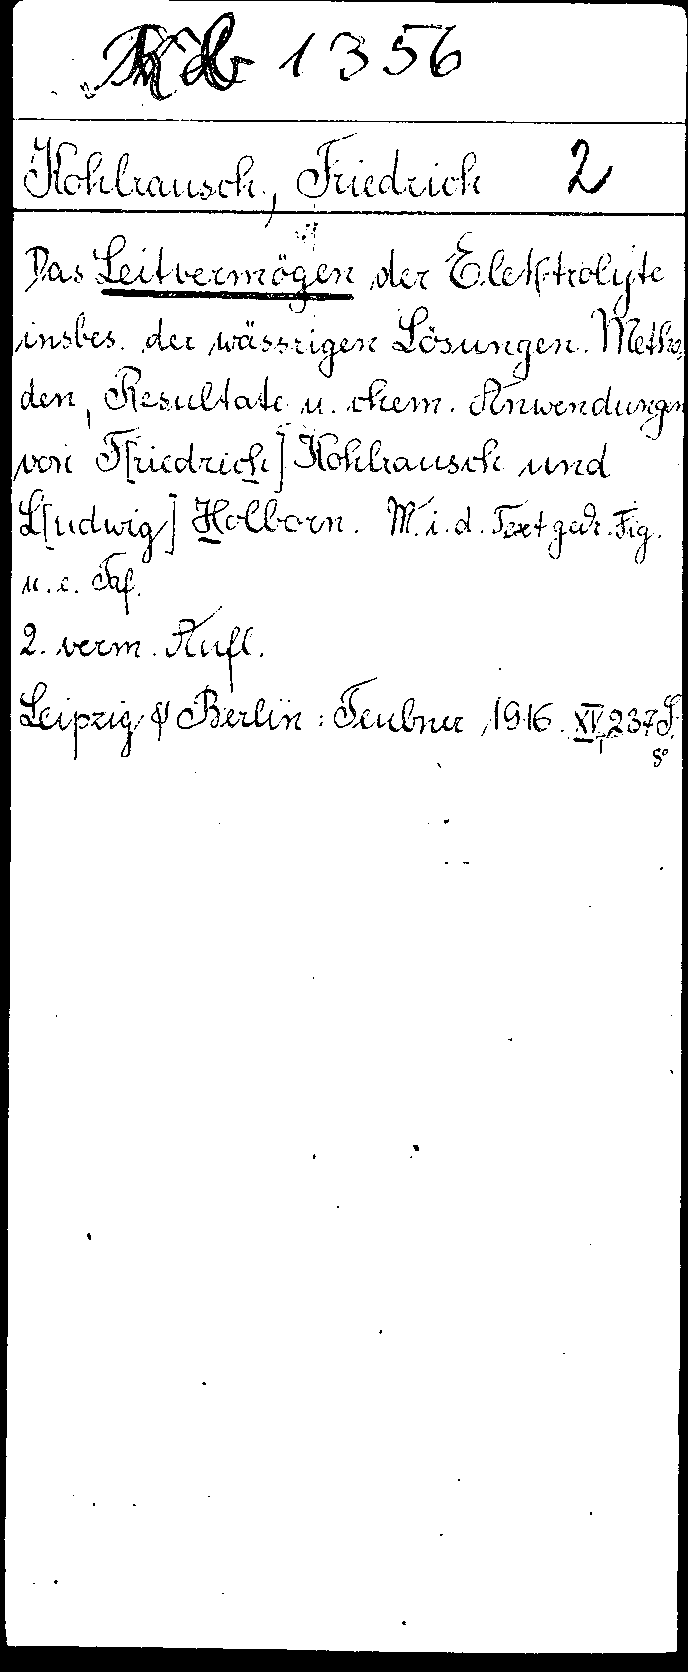 1356
Kohlrausch, Friedrich 2
Das Leitvermögen der Elektrolyte
insbes. der wässrigen Lösungen. Metho
den, Resultate u. chem. Anwendungen
von F[riedrich] Kohlrausch und
L[udwig] Holborn. M. i. d. Text gedr. Fig.
u. e. Taf.
2. verm. Aufl.
Leipzig & Berlin: Teubner 1916. XV, 237 S.
8°